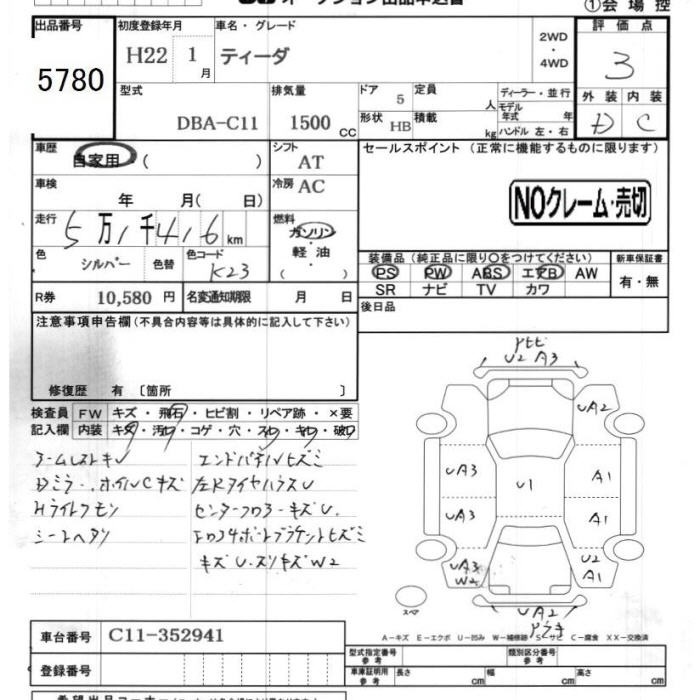 オークション出品申込書
①会場控
出品番号 初度登録年月 車名・グレード 2WD・4WD 評価点
5780 H22 1月 ティーダ 3
型式 排気量 ドア 定員 ディーラー・並行 外装 内装
DBA-C11 1500cc 5 人 モデル年式 年 D C
形状 HB 積載 kg ハンドル 左・右
車歴 自家用・( ) シフト AT セールスポイント(正常に機能するものに限ります)
車検 年 月( 日) 冷房 AC
NOクレーム・売切
走行 5万1千416km 燃料 ガソリン・軽油・( )
色 シルバー 色替 色コード K23
装備品(純正品に限り○をつけてください) 新車保証書
PS PW ABS エアB AW 有・無
SR ナビ TV カワ
R券 10,580円 名変通知期限 月 日 後日品
注意事項申告欄(不具合内容等は具体的に記入して下さい)
修復歴 有[箇所 ]
検査員 FW キズ・飛石・ヒビ割・リペア跡・×要
記入欄 内装 キズ・汚レ・コゲ・穴・スレ・キレ・破レ
アームレストキレ エンドパネルヒズミ
Dミラー・ホイルCキズ 左Rタイヤハウス U
Hライトクモリ センターフロアーキズ U.
シートヘタリ
キズ U.スリキズ W2
U2 A3
UA2
UA3 U1 A1
UA3 A1
UA3 W2 U2 A1
スペア
UA2
A-キズ E-エクボ U-凹み W-補修跡 S-サビ C-腐食 XX-交換済
車台番号 C11-352941
型式指定番号 参考 類別区分番号 参考
登録番号 車庫証明用 参考 長さ cm 幅 cm 高さ cm